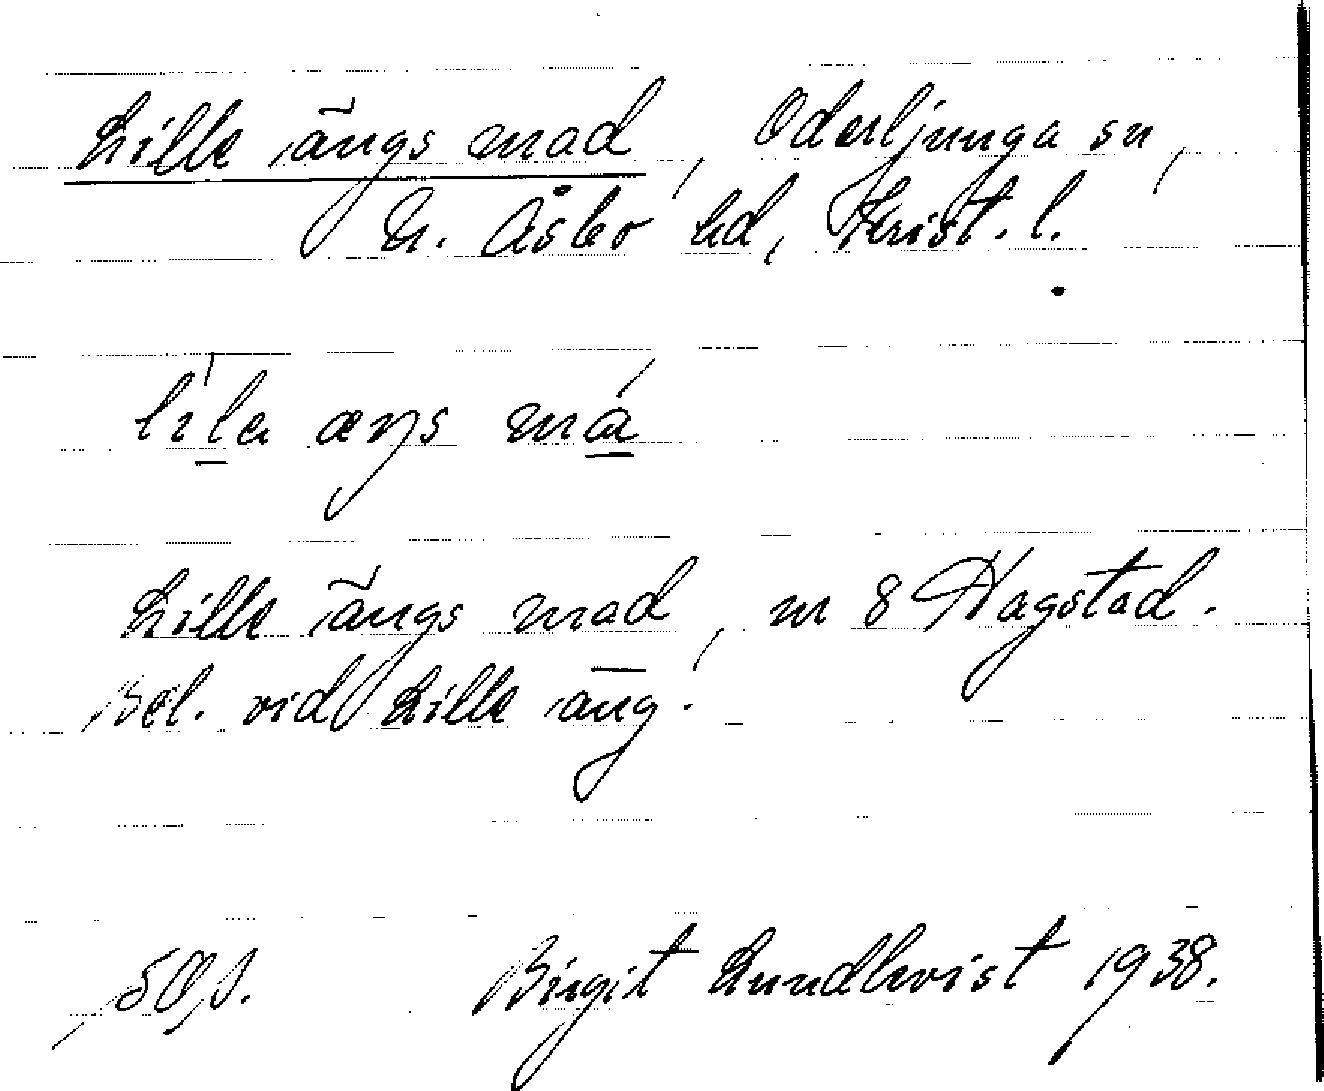 Lille ängs mad, Oderljunga sn,
N. Åsbo hd, Krist. l.
lìla æŋs má
Lille ängs mad, nr 8 Hagstad.
Bel. vid Lille äng.
Birgit Lundkvist 1938.